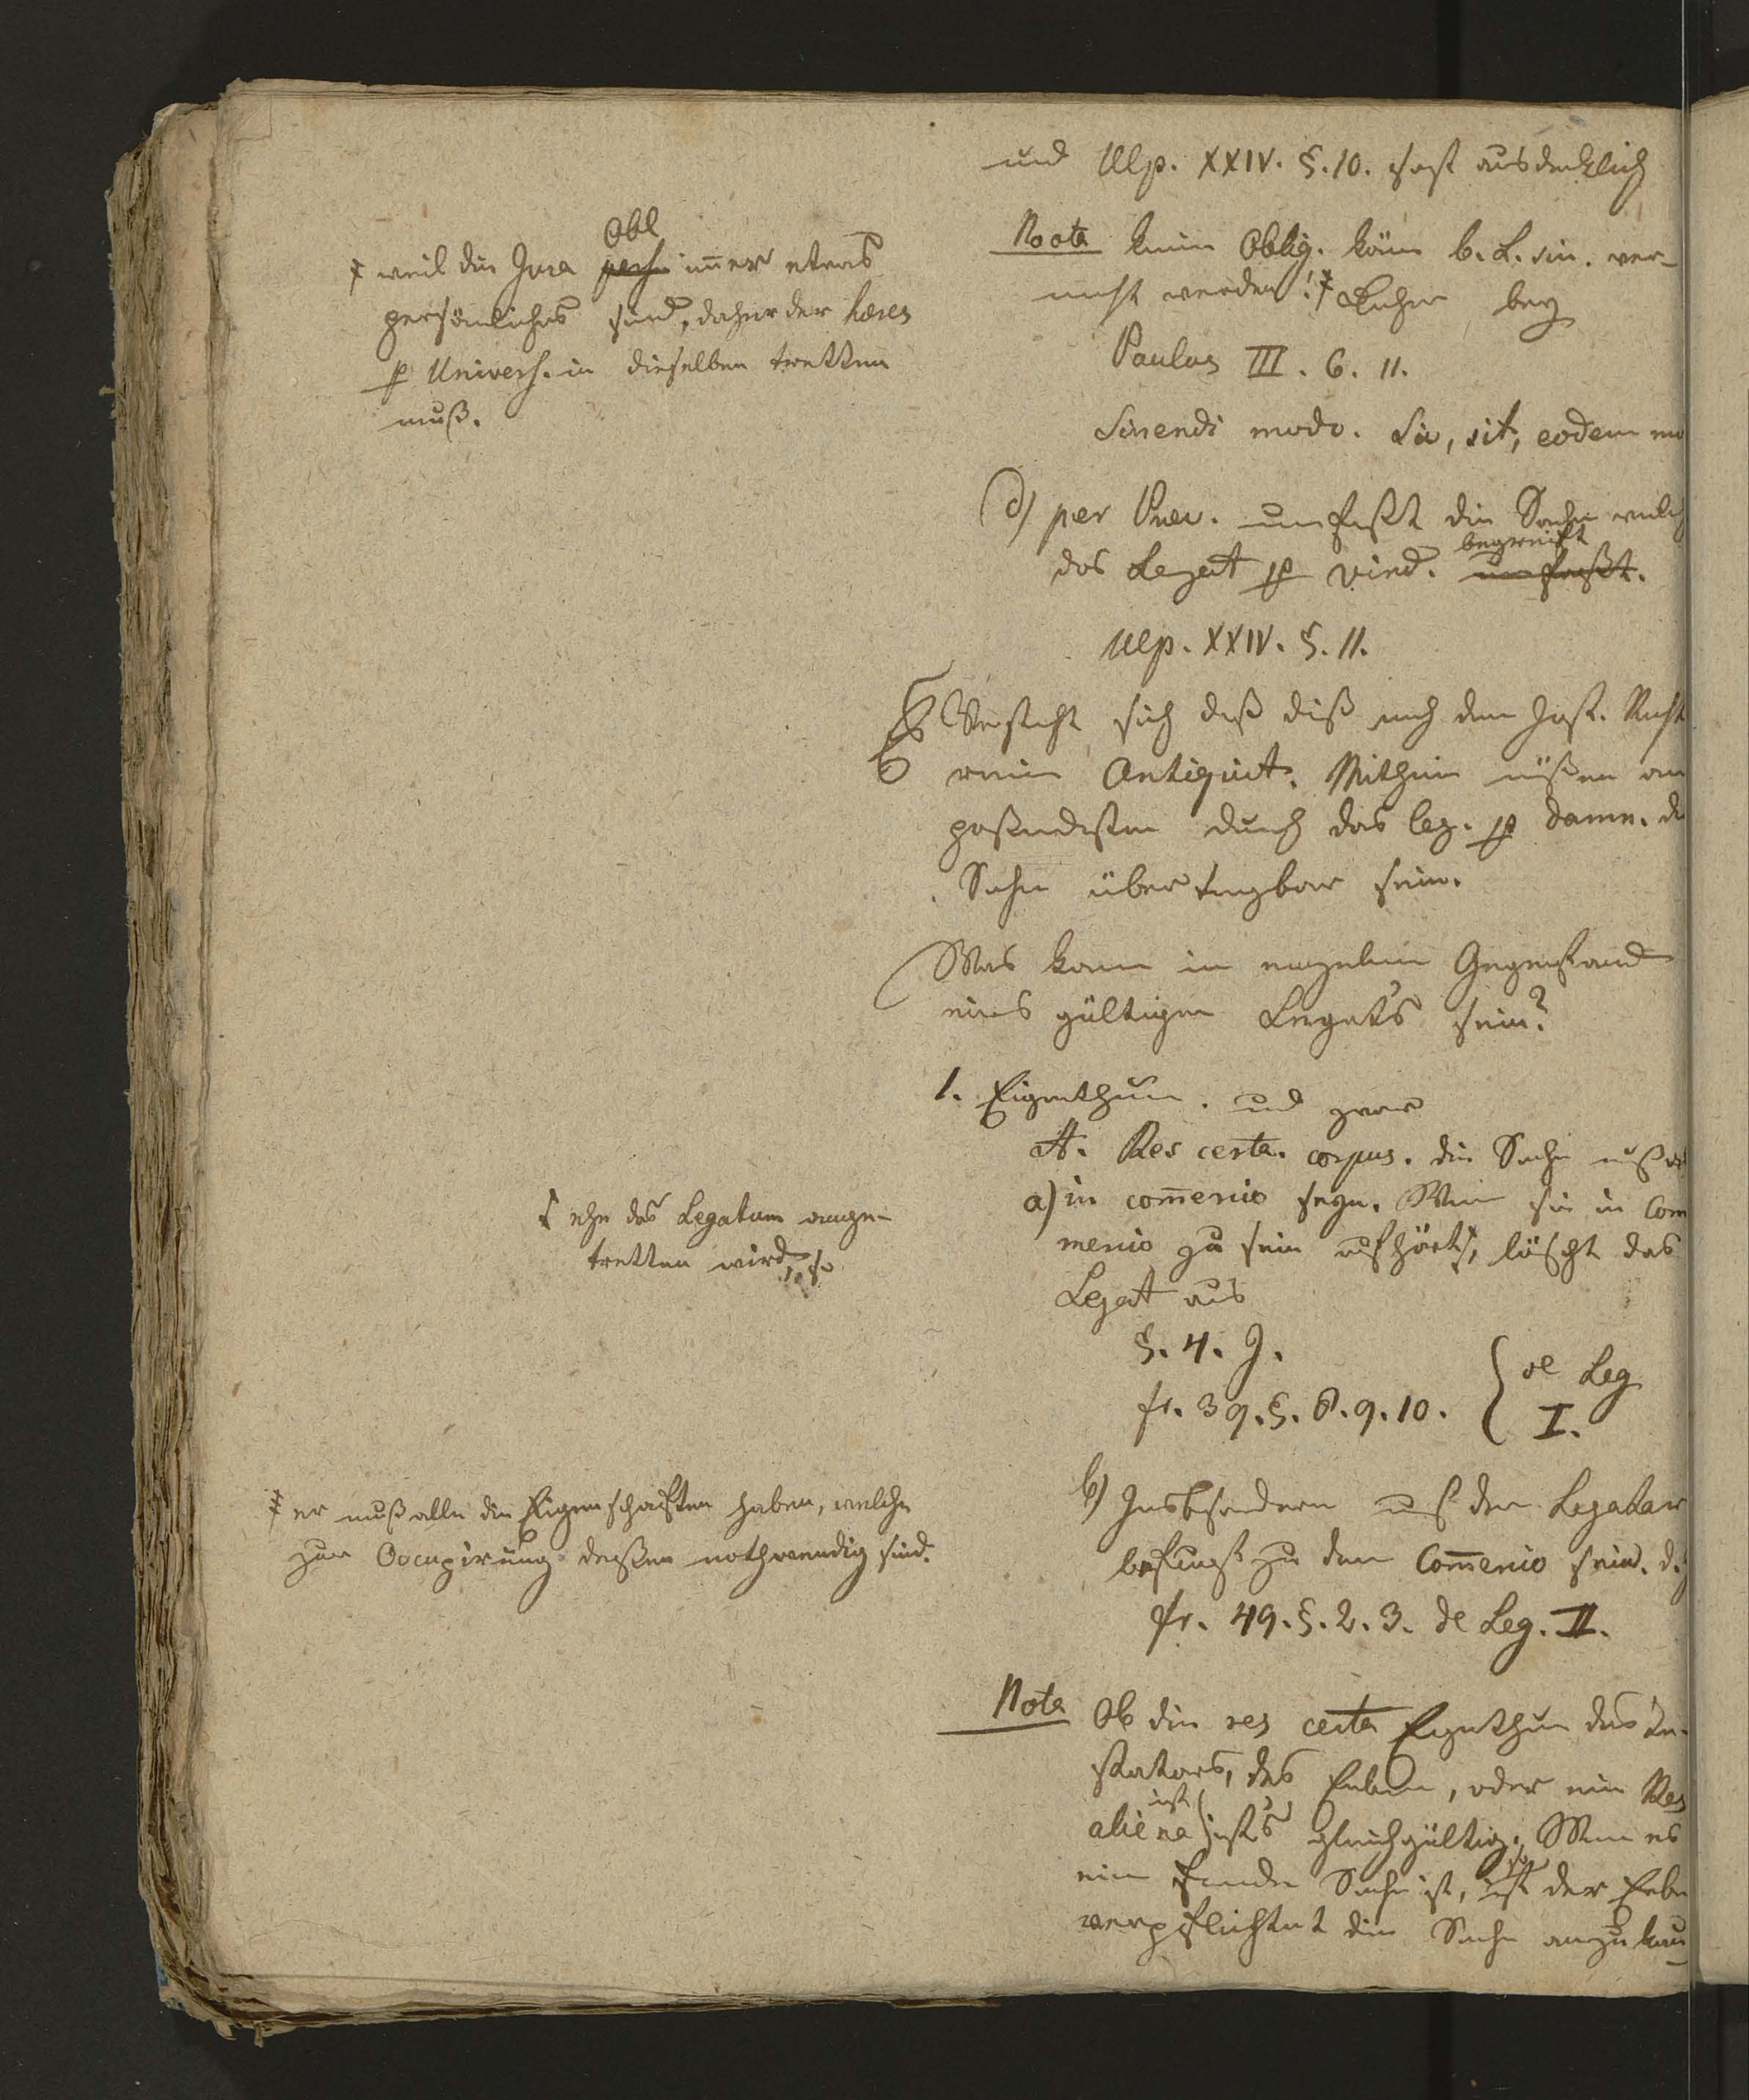 und Ulp. XXIV. §. 10. sagt ausdrücklich
Noota keine Oblig. könn b. L. sin. ver-
macht werden! ‡ Daher bey
Paulus III. 6. 11.
Sinendi modo.
d) per Praec. umfaßt die Sache welch
begreift
das Legat p vind. umfaßt.
Ulp. XXIV. §. 11.
Versteht sich daß diß nach dem Just. Recht
rein Antiquit. Mithin müßen am
paßendsten durch das leg. p damn. d
Sache übertragbar sein.
Was kann im einzelnen Gegenstand
eines gültigen Legat's sein?
1. Eigenthum. und zwar
A. Res certa. corpus. die Sache muß
a) in com̄ercio seyn. Wenn sie in Com
mercio zu sein aufhört, löscht das
Legat aus
§. 4. J.
fr. 39. §. 8. 9. 10. { de Leg
I.
b) Insbesondere muß der Legatar
befugt zu dem Com̄ercio sein. d.
fr. 49. §. 2. 3. de Leg. II.
Nota Ob die res certa Eigenthum des Te-
stators, des Erben, oder eine Res
ist
aliena ists gleichgültig. Wenn es
so
eine fremde Sache ist, ist der Erbe
verpflichtet die Sache anzukau-
Obl
‡ weil die Jura pers. im̄er etwas
persönliches sind, daher der haeres
p Univers. in dieselben tretten
muß.
ehe das Legatum ange-
tretten wird, so
‡ er muß alle die Eigenschaften haben, welche
zur Occupirung deßen nothwendig sind.